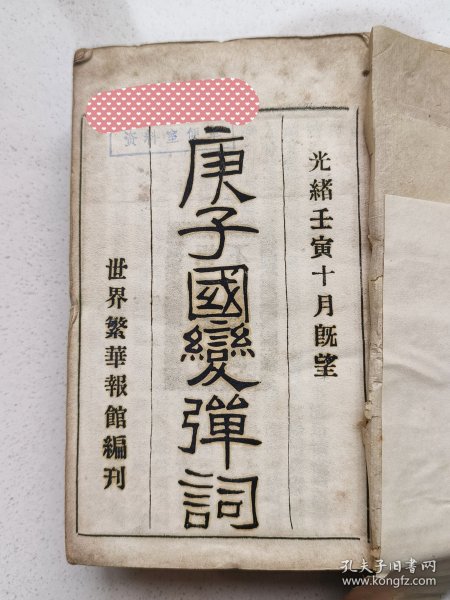 光緒壬寅十月旣望
庚子國變彈詞
世界繁華報館編刊
资料室
孔夫子旧书网
www.kongfz.com